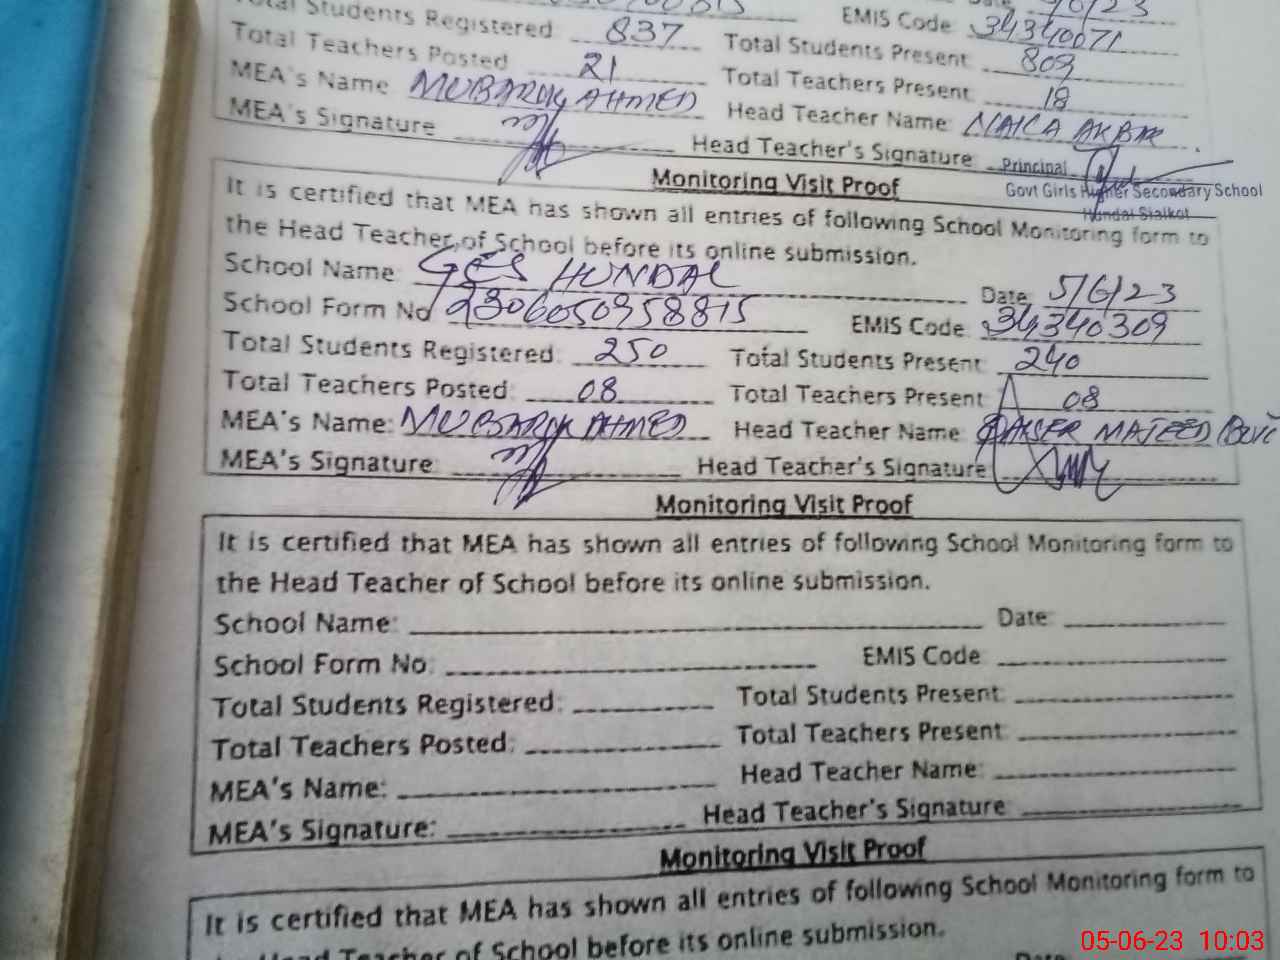 Total Students Registered: 837 EMIS Code: 34340071
Total Teachers Posted 21 Total Students Present: 809
MEA's Name MUBARIK AHMED Total Teachers Present: 18
MEA's Signature Head Teacher Name: NAILA AKBAR
Head Teacher's Signature Principal
Govt Girls Higher Secondary School
Hundal Sialkot
Monitoring Visit Proof
It is certified that MEA has shown all entries of following School Monitoring form to
the Head Teacher of School before its online submission.
School Name: GES HUNDAL Date 5/6/23
School Form No 2306050958815 EMIS Code: 34340309
Total Students Registered: 250 Total Students Present: 240
Total Teachers Posted: 08 Total Teachers Present 08
MEA's Name: MUBARIK AHMED Head Teacher Name: QAISER MAJEED
MEA's Signature: Head Teacher's Signature
Monitoring Visit Proof
It is certified that MEA has shown all entries of following School Monitoring form to
the Head Teacher of School before its online submission.
School Name: Date:
School Form No: EMIS Code
Total Students Registered: Total Students Present:
Total Teachers Posted: Total Teachers Present:
MEA's Name: Head Teacher Name:
MEA's Signature: Head Teacher's Signature
Monitoring Visit Proof
It is certified that MEA has shown all entries of following School Monitoring form to
the Head Teacher of School before its online submission.
Date
05-06-23 10:03